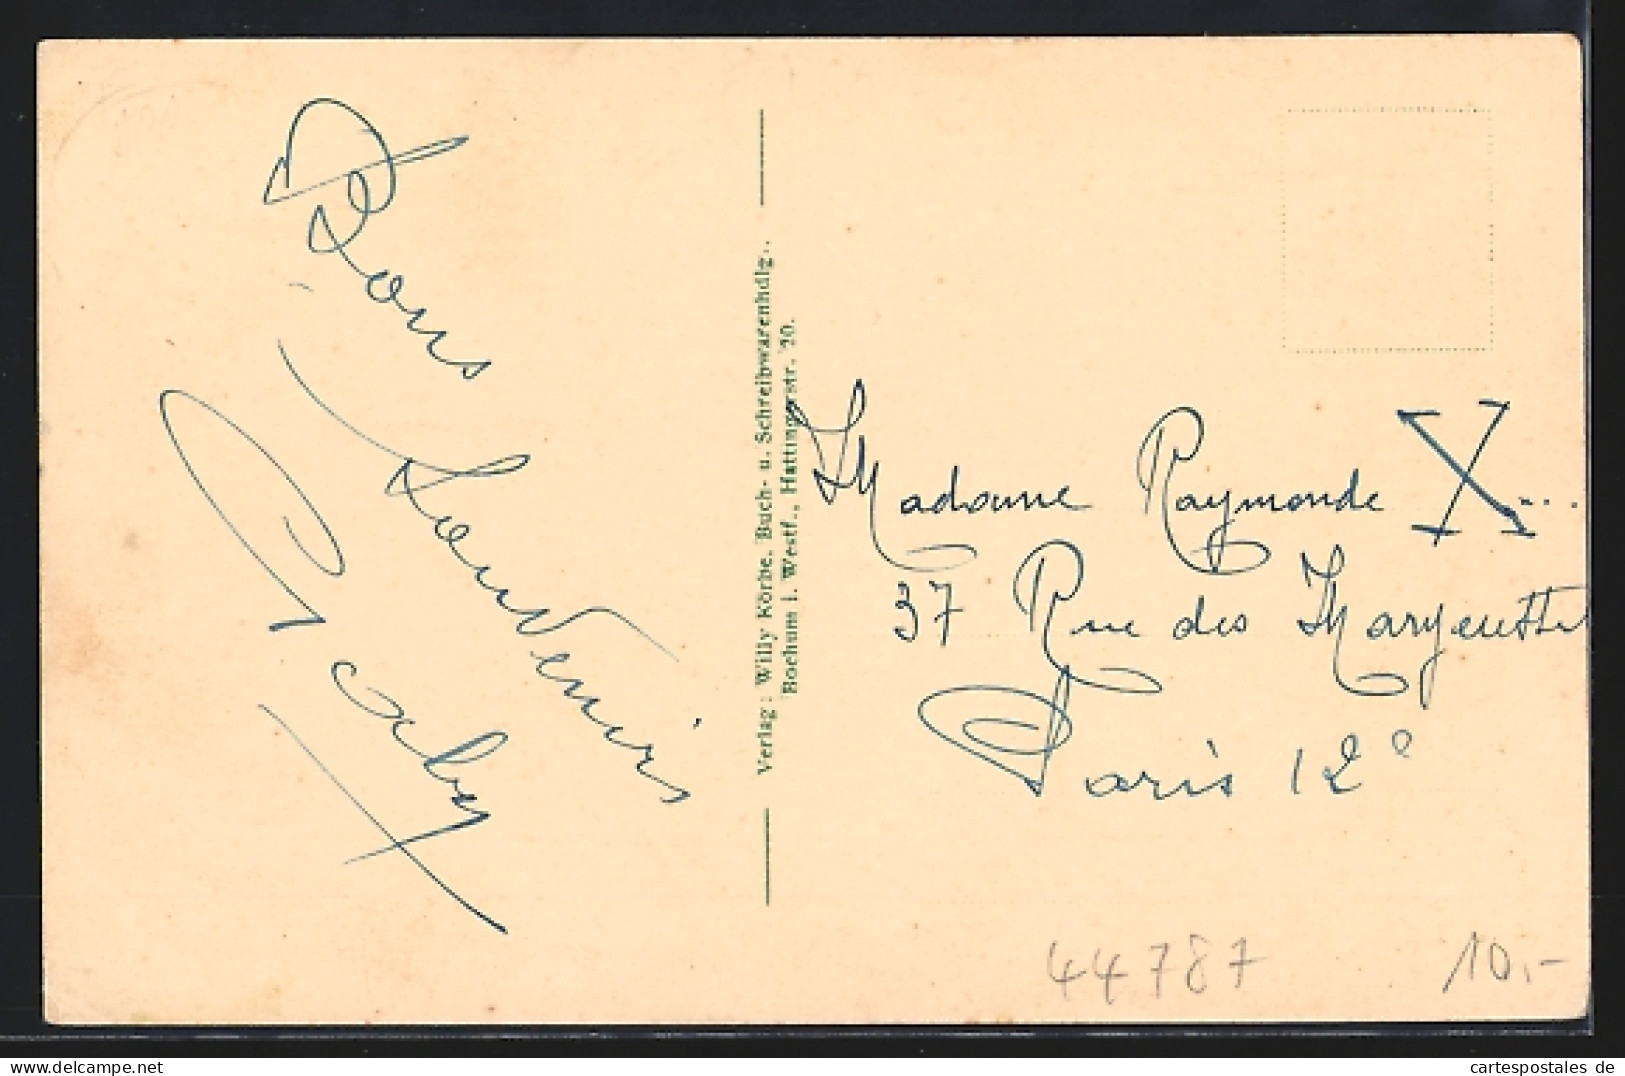 Bons
Souvenirs
Gaby
Verlag: Willy Körbe. Buch- u. Schreibwarenhdlg..
Bochum i. Westf., Hattingerstr. 20.
Madame Raymonde X...
37 Rue des Marguettes
Paris 12e
44787
10,-
cartespostales de